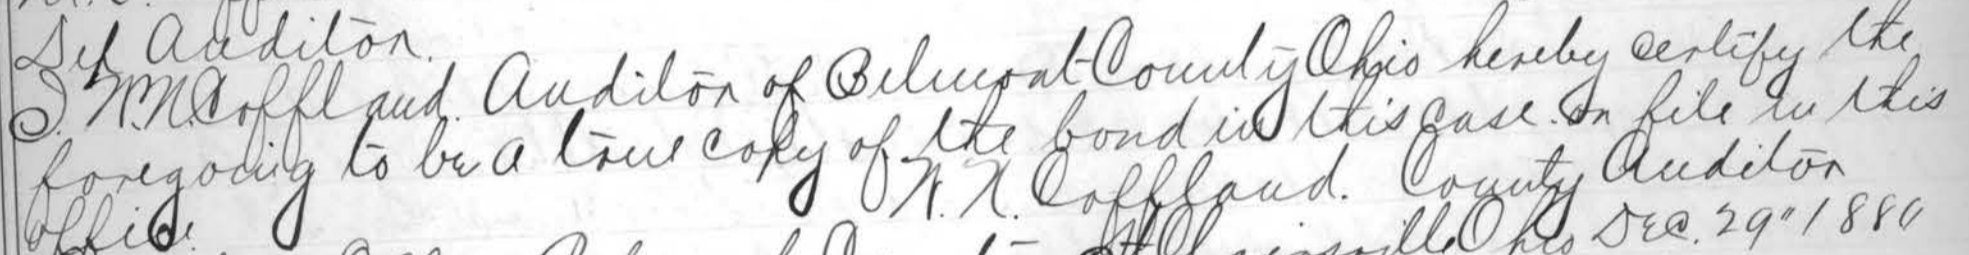 Auditor.
I. W.N. Coffland. Auditor of Belmont County Ohio hereby certify the
foregoing to be a true copy of the bond in this case. on file in this
office.
W. N. Coffland. County Auditor
St Clairsville Ohio Dec. 29"